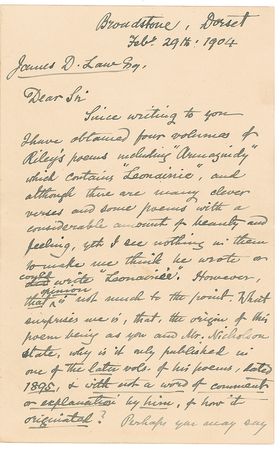 Broadstone, Dorset
Feby. 29th. 1904
James D. Law Esq.
Dear Sir
Since writing to you
I have obtained four volumes of
Riley's poems including "Armazindy"
which contains "Leonainie", and
although there are many clever
verses and some poems with a
considerable amount of beauty and
feeling, yet I see nothing in them
to make me think he wrote or
could write "Leonainie". However,
that opinion is not much to the point. What
surprises me is, that, the origin of this
poem being as you and Mr. Nicholson
state, why is it only published in
one of the later vols. of his poems, dated
1895, & with not a word of comment
or explanation by him, of how it
originated? Perhaps you may say